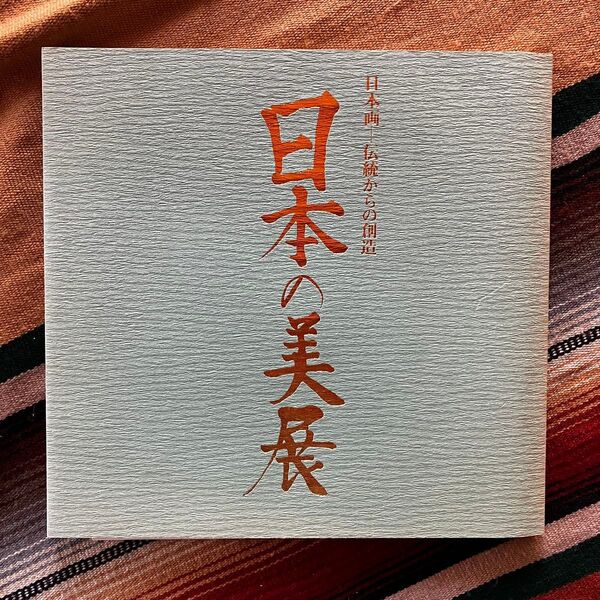 日本画―伝統からの創造
日本の美展